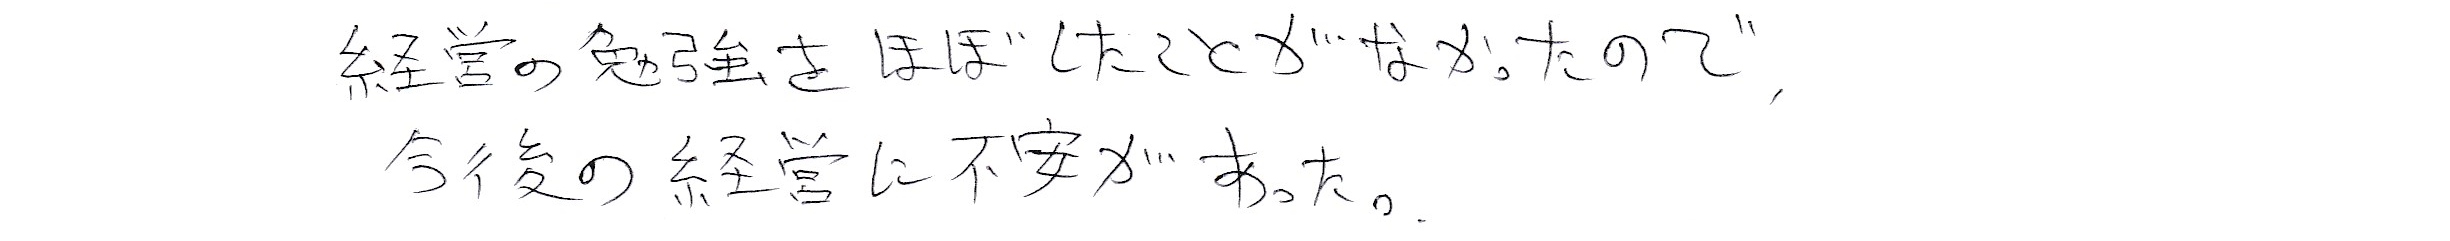 経営の勉強をほぼしたことがなかったので、
今後の経営に不安があった。